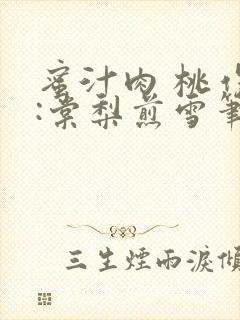 蜜汁肉桃作
:棠梨煎雪筆
三生煙雨淚傾